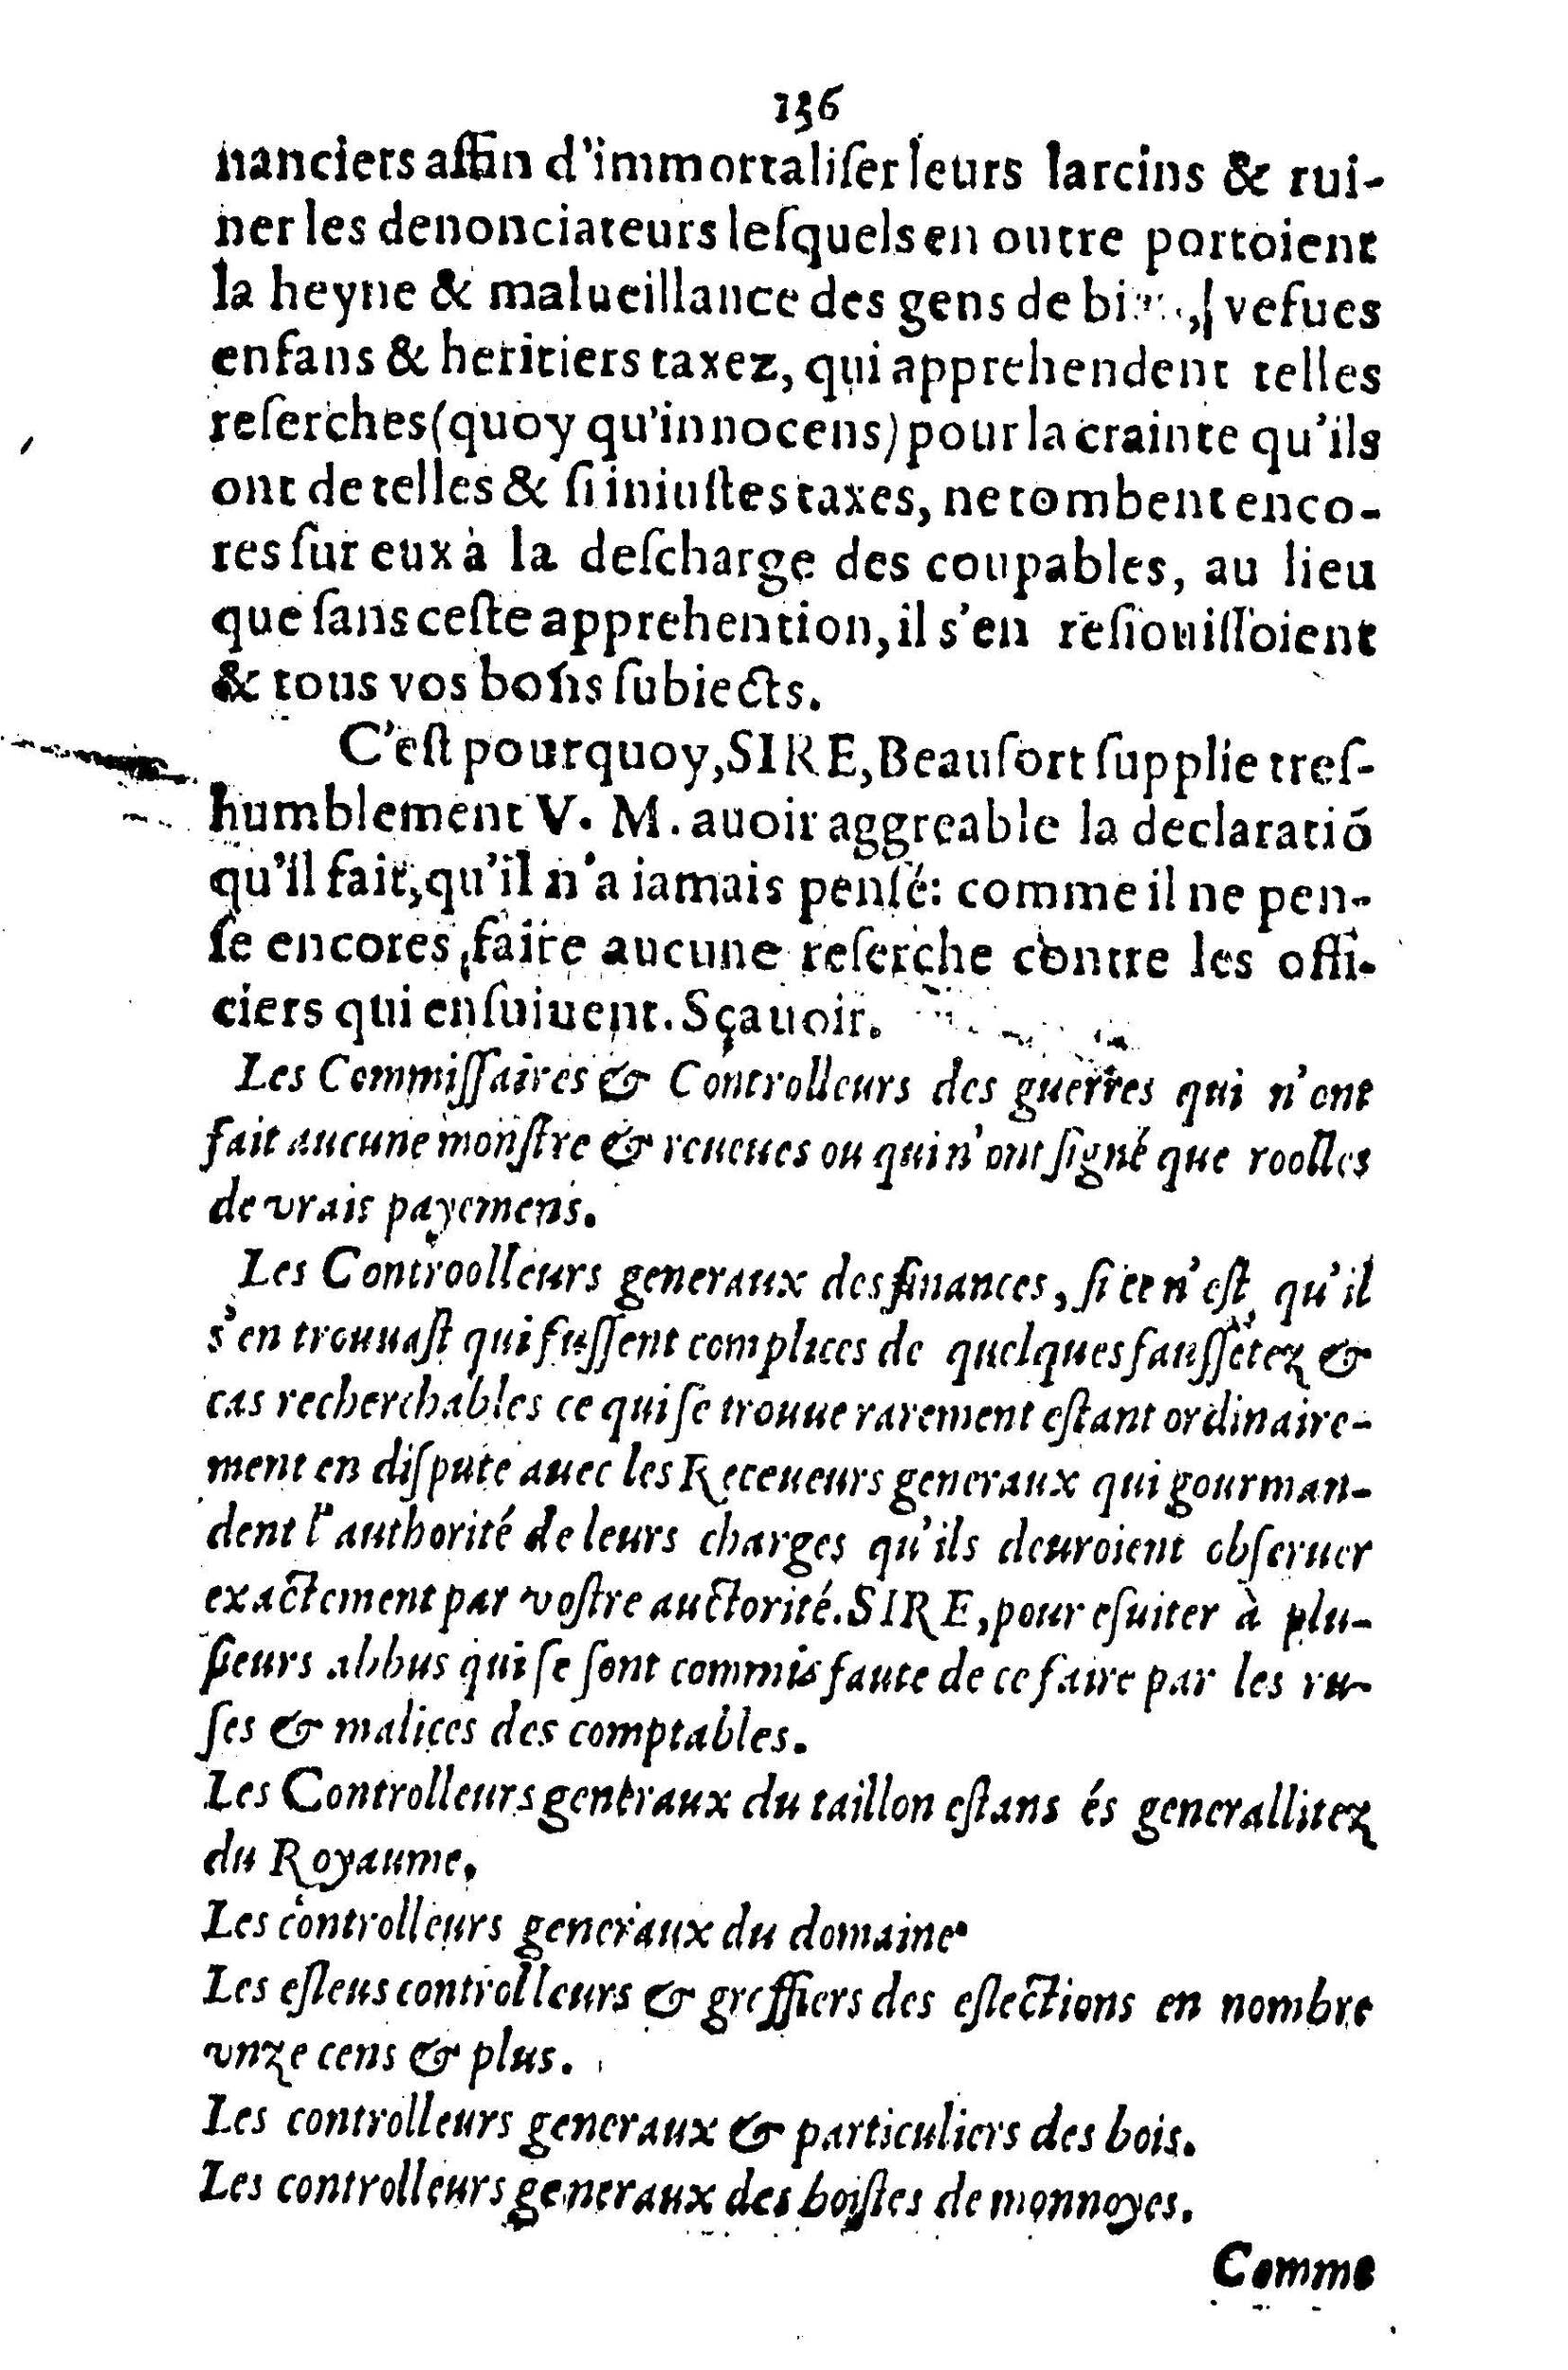 136
nanciers affin d'immortaliſer leurs larcins & rui-
ner les denonciateurs leſquels en outre portoient
la heyne & malueillance des gens de vefues
enfans & heritiers taxez, qui apprehendent telles
reſerches (quoy qu'innocens) pour la crainte qu'ils
ont de telles & ſi iniuſtes taxes, ne tombent enco-
res ſur eux à la deſcharge des coupables, au lieu
que ſans ceſte apprehention, il s'en reſiouiſſoient
& tous vos bons ſubiects.
C'eſt pourquoy, SIRE, Beaufort ſupplie treſ-
humblement V. M. auoir aggreable la declaratió
qu'il fait, qu'il n'a iamais penſé: comme il ne pen-
ſe encores, faire aucune reſerche contre les offi-
ciers qui enſuiuent. Sçauoir.
Les Commiſſaires & Controlleurs des guerres qui n'ont
fait aucune monſtre & reueues ou qui n'ont ſigné que roolles
de vrais payemens.
Les Controolleurs generaux des finances, ſi ce n'eſt, qu'il
s'en trouuaſt qui fuſſent complices de quelques fauſſetez &
cas recherchables ce qui ſe trouue rarement eſtant ordinaire-
ment en diſpute auec les Receueurs generaux qui gourman-
dent l'authorité de leurs charges qu'ils deuroient obſeruer
exactement par voſtre auctorité. SIRE, pour eſuiter à plu-
ſieurs abbus qui ſe ſont commis faute de ce faire par les ru-
ſes & malices des comptables.
Les Controlleurs generaux du taillon eſtans és generallitez
du Royaume.
Les controlleurs generaux du domaine.
Les eſleus controlleurs & greffiers des eſlections en nombre
vnze cens & plus.
Les controlleurs generaux & particuliers des bois.
Les controlleurs generaux des boiſtes de monnoyes.
Comme